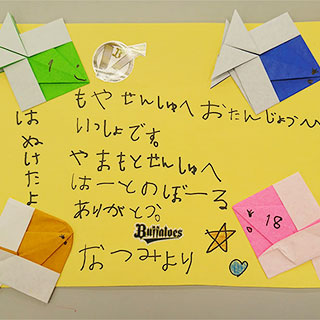 1
もやせんしゅへ おたんじょうび
いっしょです。
やまもとせんしゅへ
はーとのぼーる
ありがとう。
Buffaloes
なつみより
はぬけたよ
18